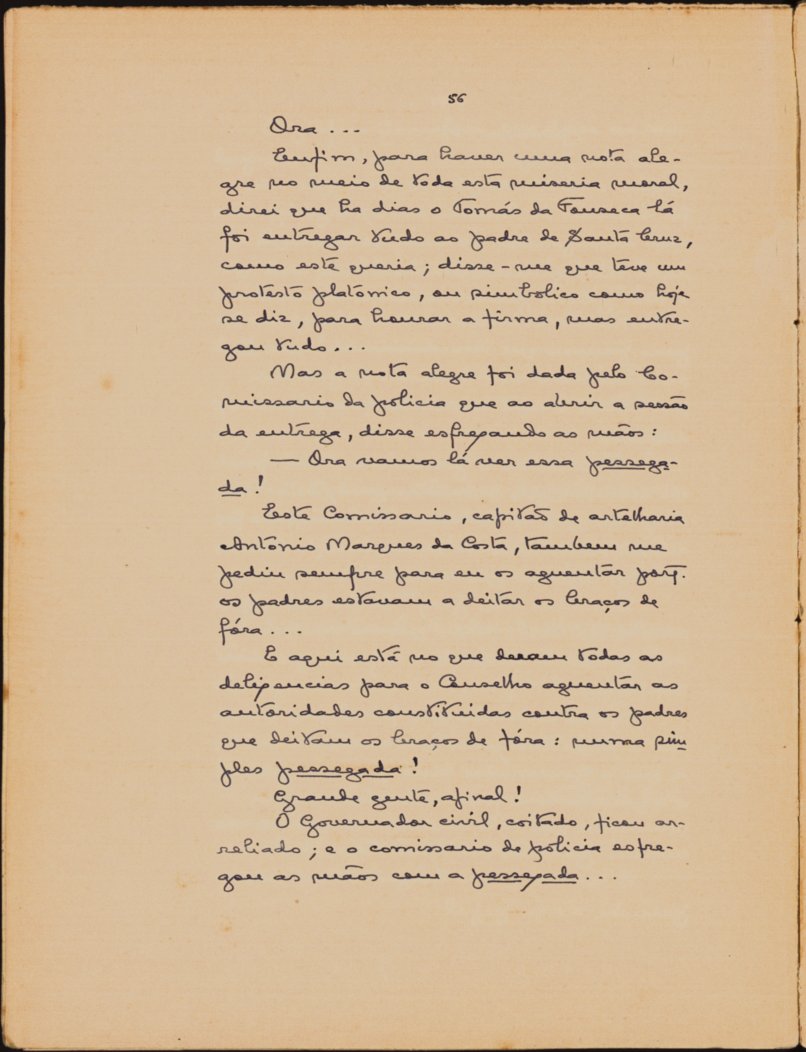 56
Ora ...
Emfim, para haver uma nota ale-
gre no meio de toda esta miseria moral,
direi que ha dias o Tomás da Fonseca lá
foi entregar tudo ao padre de Santa Cruz,
como este queria; disse-me que teve um
protesto platonico, ou simbolico como hoje
se diz, para honrar a firma, mas entre-
gou tudo...
Mas a nota alegre foi dada pelo Co-
missario da policia que ao abrir a sessão
da entrega, disse esfregando as mãos:
— Ora vamos lá ver essa pessega-
da!
Este Comissario, capitão de artelharia
António Marques da Costa, tambem me
pediu sempre para eu os aguentar porq.
os padres estavam a deitar os braços de
fóra...
E aqui está no que deram todas as
deligencias para o Conselho aguentar as
autoridades constituidas contra os padres
que deitam os braços de fóra: numa sim
ples pessegada!
Grande gente, afinal!
O Governador civil, coitado, ficou ar-
reliado; e o comissario de policia esfre-
gou as mãos com a pessegada...